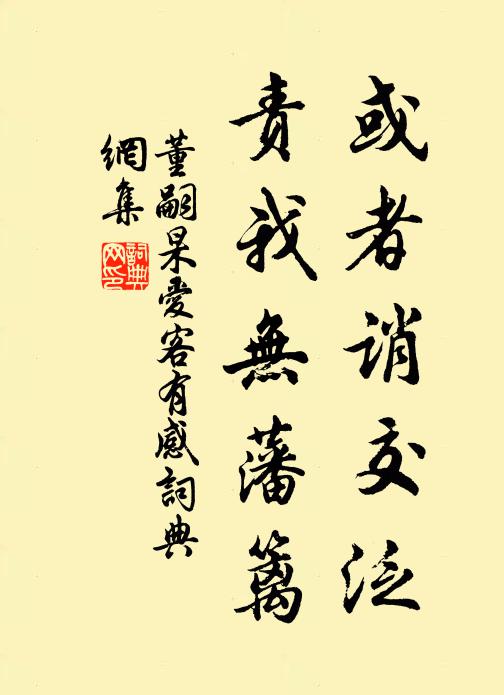 或者誚交泛
責我無藩籬
董嗣杲愛客有感詞典
網集
詞典
网印